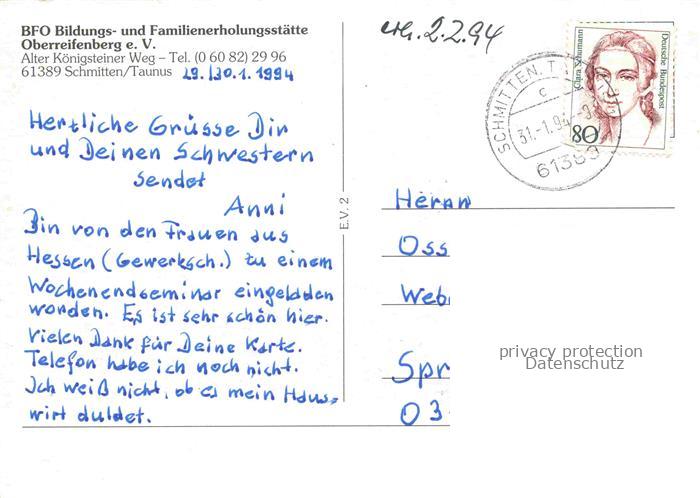 BFO Bildungs- und Familienerholungsstätte
Oberreifenberg e. V.
Alter Königsteiner Weg – Tel. (0 60 82) 29 96
61389 Schmitten/Taunus 29./30.1.1994
Hertliche Grüsse Dir
und Deinen Schwestern
sendet
Anni
Bin von den Frauen aus
Hessen (Gewerksch.) zu einem
Wochenendseminar eingeladen
worden. Es ist sehr schön hier.
Vielen Dank für Deine Karte.
Telefon habe ich noch nicht.
Ich weiß nicht, ob es mein Haus-
wirt duldet.
E.V. 2
erh. 2.2.94
SCHMITTEN, T
c
31.-1.94
61389
Clara Schumann
Deutsche Bundespost
80
Herrn
Oss
Web
Spr
03
privacy protection
Datenschutz